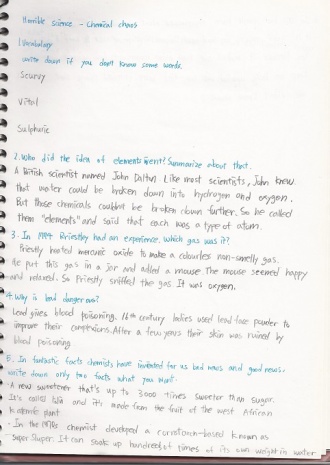 Horrible science - Chemical chaos
1. Vocabulary
write down if you don't know some words.
Scurvy
Vital
Sulphuric
2. Who did the idea of elements invent? Summarize about that.
A British scientist named John Dalton. Like most scientists, John knew
that water could be broken down into hydrogen and oxygen.
But those chemicals couldn't be broken down further. So he called
them "elements" and said that each was a type of atom.
3. In 1774 Priestley had an experience, which gas was it?
Priestly heated mercuric oxide to make a colourless non-smelly gas.
He put this gas in a jar and added a mouse. The mouse seemed happy
and relaxed. So Priestly sniffed the gas It was oxygen.
4. Why is lead dangerous?
Lead gives blood poisoning. 16th century ladies used lead face powder to
improve their complexions. After a few years their skin was ruined by
blood poisoning
5. In fantastic facts chemists have invented for us bad news and good news.
write down only two facts what you want.
A new sweetener that's up to 3000 times sweeter than sugar.
It's called and it's made from the fruit of the west African
Katemfe plant
In the 1970s chemist developed a cornstarch-based known as
Super Slurper. It can soak up hundreds of times of its own weight in water